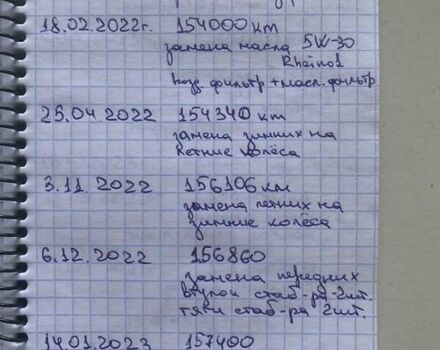 18.02.2022г. 154000 км
замена масла 5W-30
Rheinol
возд фильтр + масл. фильтр
25.04.2022 154340 км
замена зимних на
летние колёса
3.11.2022 156106 км
замена летних на
зимние колёса
6.12.2022 156860
замена передних
втулок стаб-ра-2шт.
тяги стаб-ра 2шт.
14.01.2023 157400